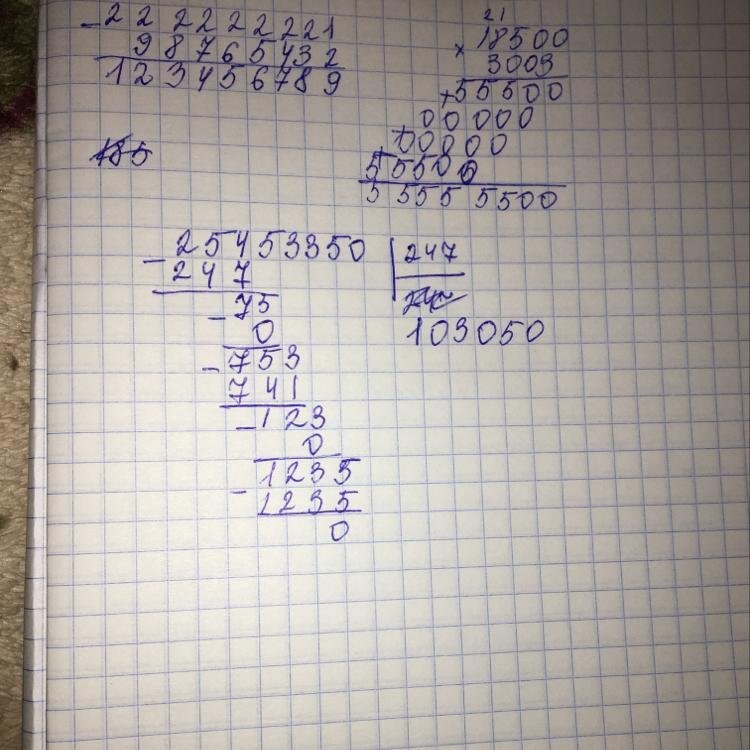 - 222222221
98765432
123456789
21
× 18500
3003
+ 55500
+ 00000
+ 00000
55500
55555500
185
- 25453350 | 247
247
103050
- 75
0
- 753
741
- 123
0
- 1235
1235
0